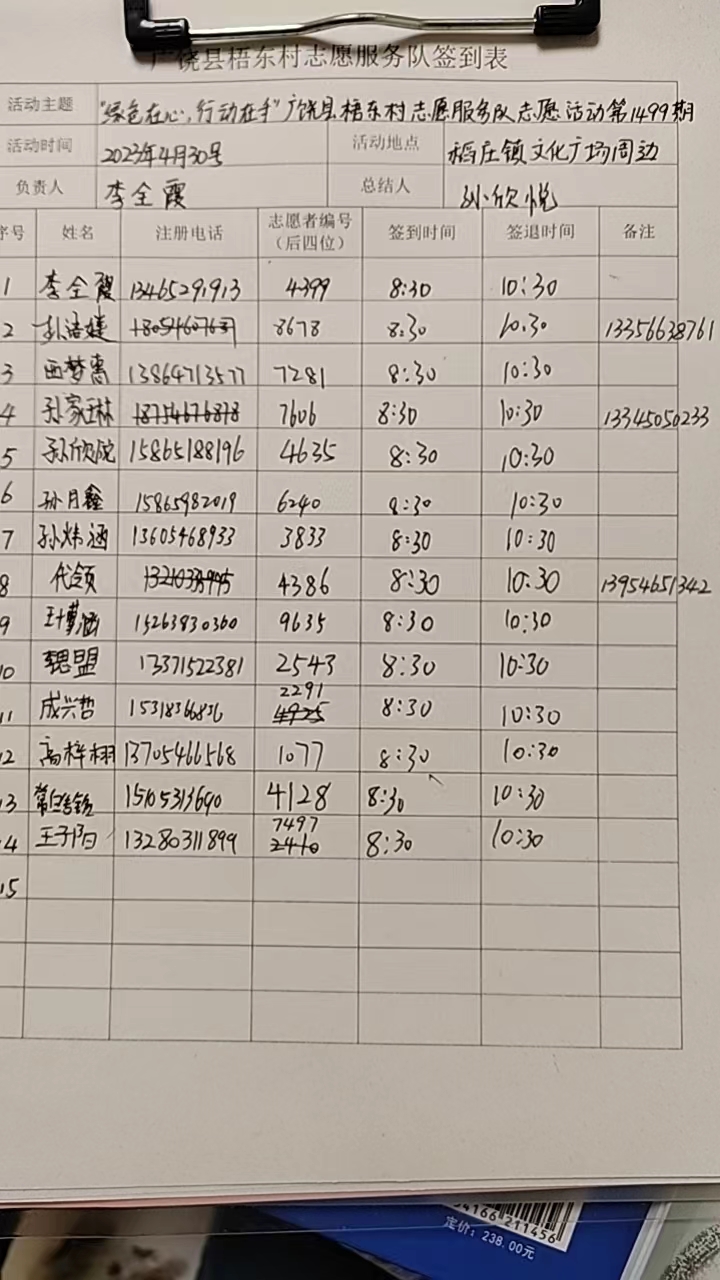 广饶县梧东村志愿服务队签到表
活动主题 "绿色在心,行动在手"广饶县梧东村志愿服务队志愿活动第1499期
活动时间 2023年4月30号 活动地点 稻庄镇文化广场周边
负责人 李全霞 总结人 孙欣悦
序号 姓名 注册电话 志愿者编号(后四位) 签到时间 签退时间 备注
1 李全霞 13465291913 4399 8:30 10:30
2 8678 8:30 10:30 13356638761
3 西梦 13864713577 7281 8:30 10:30
4 孙家琳 18754676878 7606 8:30 10:30 13345050233
5 孙欣悦 15865188196 4635 8:30 10:30
6 孙月鑫 15865982019 6240 8:30 10:30
7 孙炜涵 13605468933 3833 8:30 10:30
8 代领 4386 8:30 10:30 13954651342
9 涵 15263830360 9635 8:30 10:30
10 盟 13371522381 2543 8:30 10:30
11 成兴哲 15318366836 2291 4925 8:30 10:30
12 高梓栩 13705466568 1077 8:30 10:30
13 15105313690 4128 8:30 10:30
14 王子阳 13280311899 7497 2410 8:30 10:30
15
34166 211456
定价:238.00元